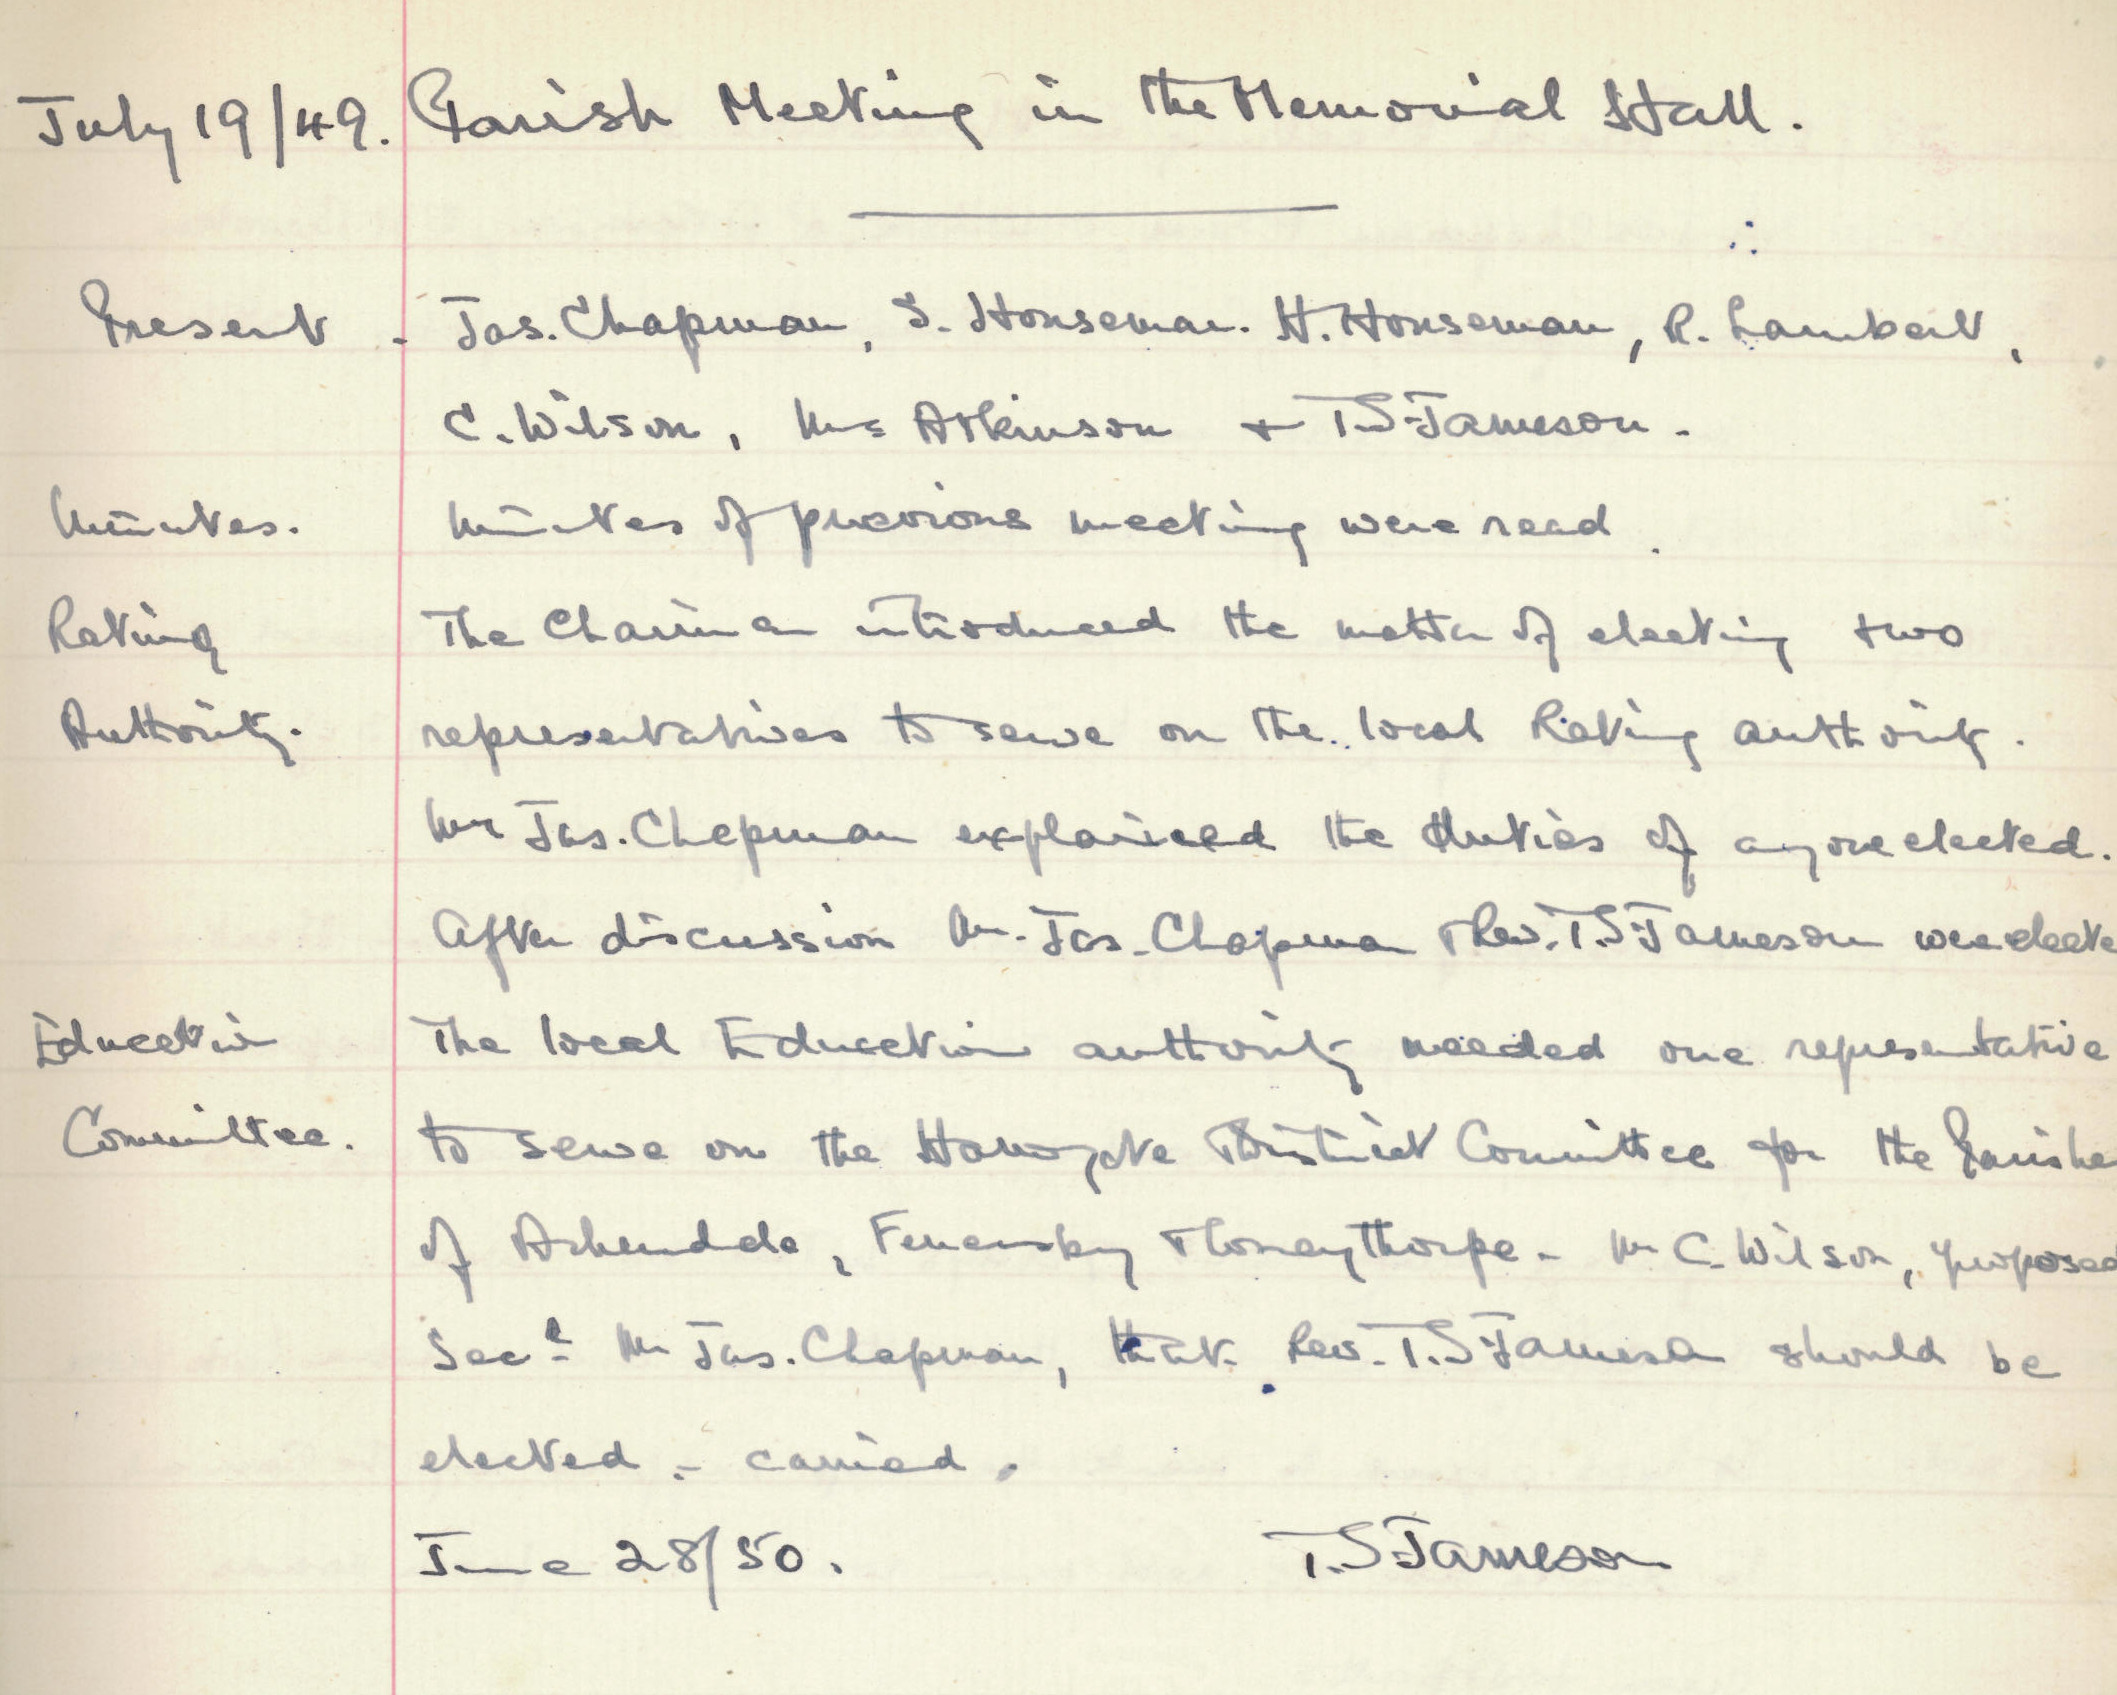 July 19/49. Parish Meeting in the Memorial Hall.
Present - Jas. Chapman, S. Houseman. H. Houseman, R. Lambert,
C. Wilson, Mrs Atkinson + T.S. Jameson.
Minutes. Minutes of previous meeting were read.
Rating The Chairman introduced the matter of electing two
Authority. representatives to serve on the local Rating authority.
Mr Jas. Chapman explained the duties of anyone elected.
After discussion Mr. Jas. Chapman + Rev. T.S. Jameson were electe
Education The local Education authority needed one representative
Committee. to serve on the Harrogate District Committee for the Parishe
of Arkendale, Ferrensby + Coneythorpe - Mr C. Wilson, proposed
Secd Mr Jas. Chapman, that Rev. T.S. Jameson should be
elected - carried.
June 28/50. T.S. Jameson